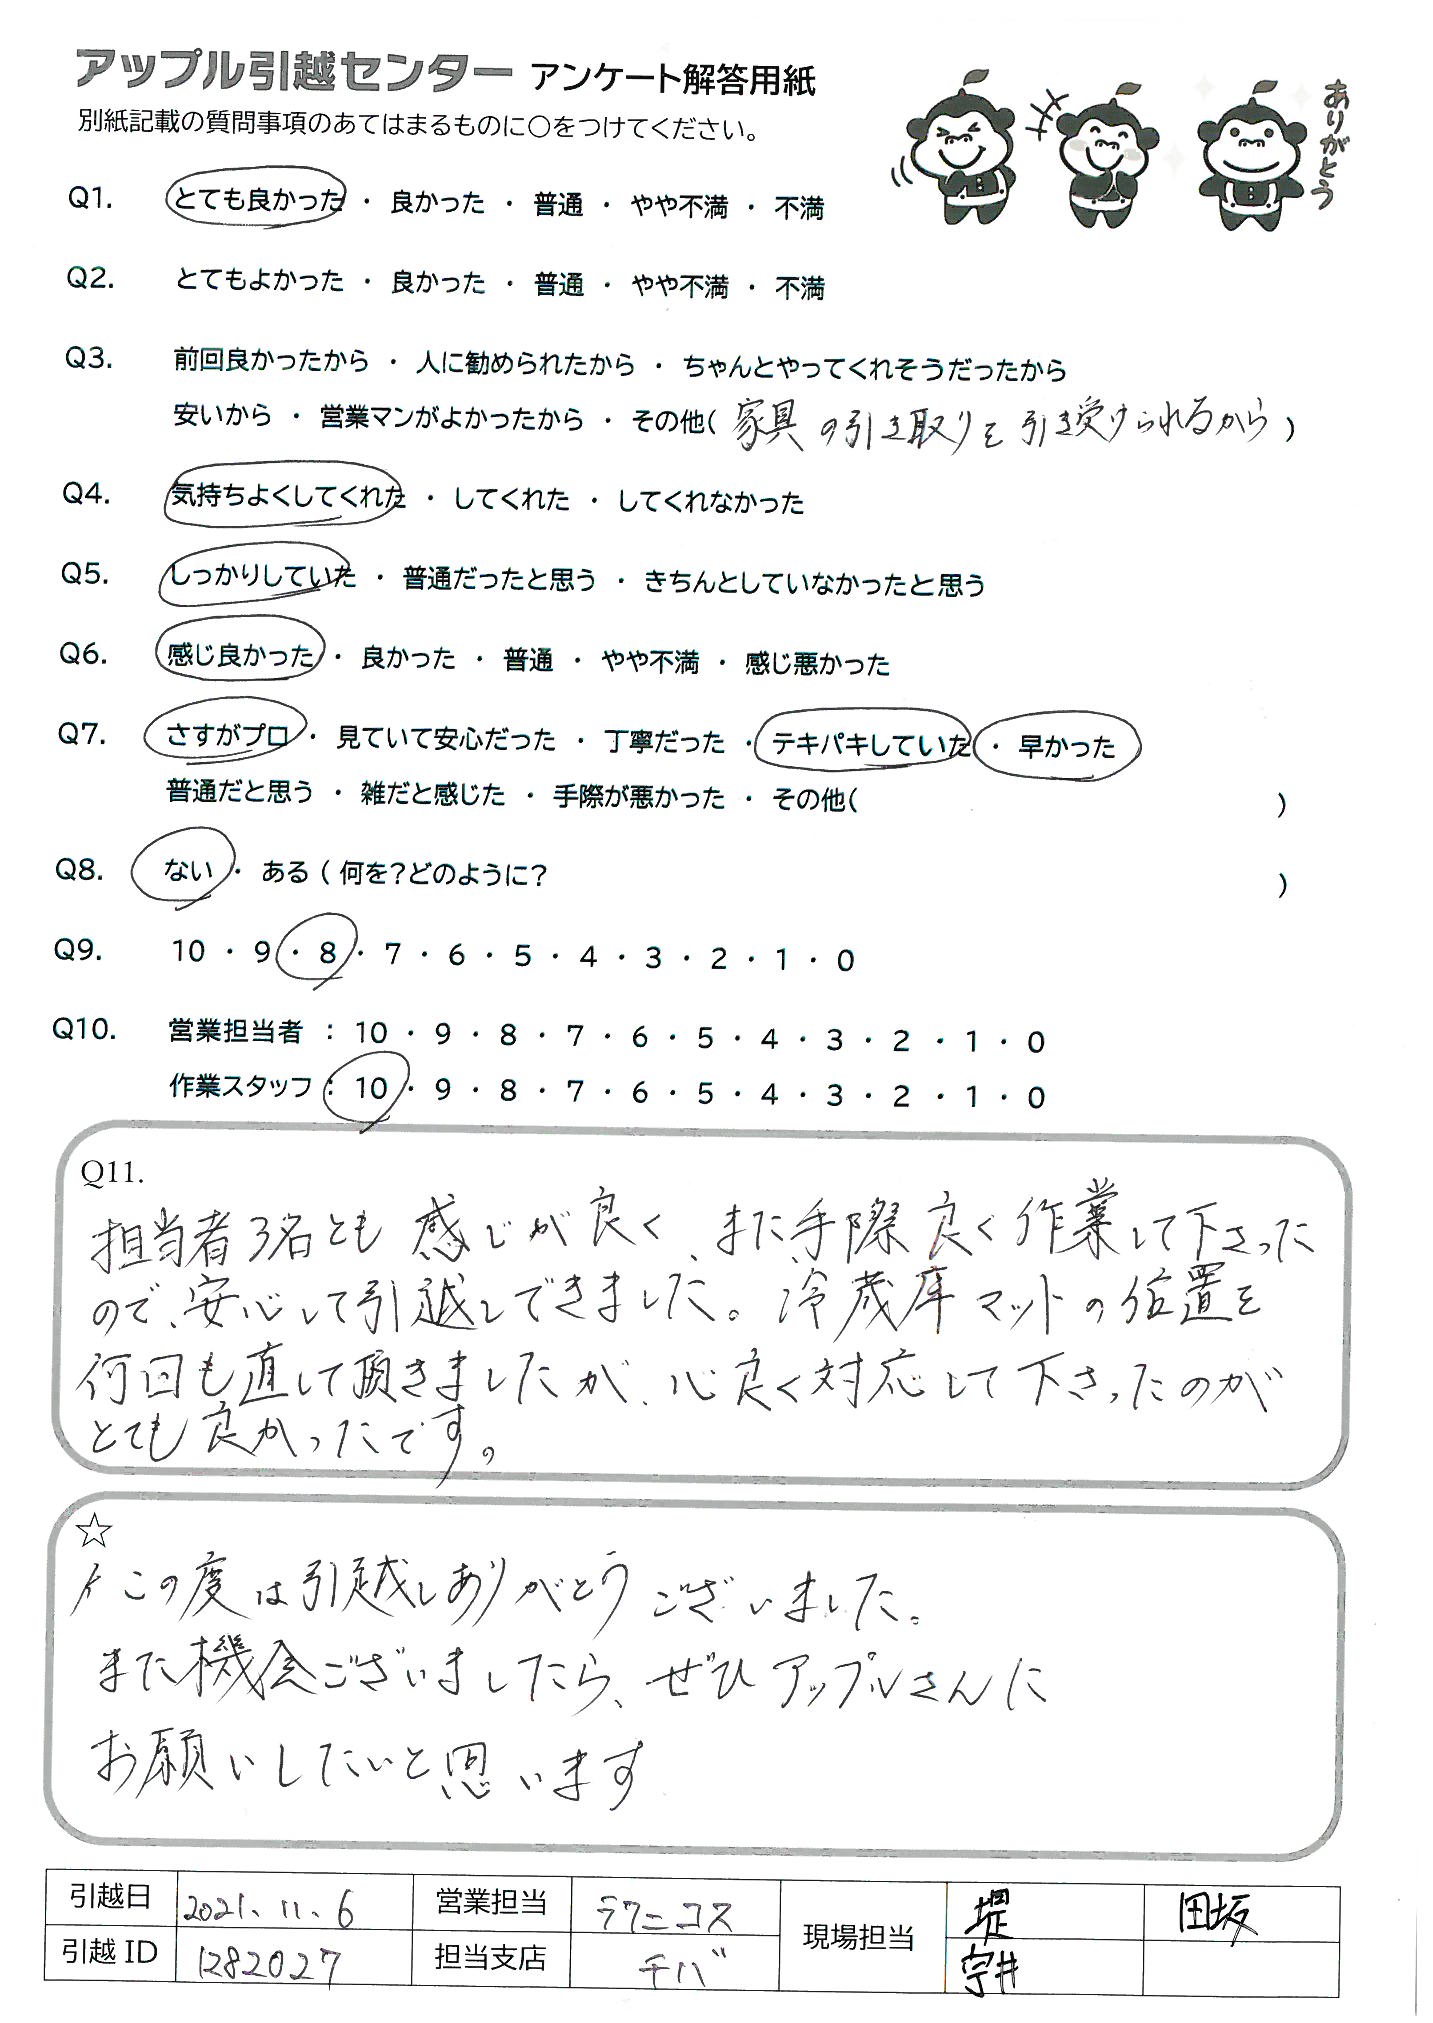 アップル引越センター アンケート解答用紙
別紙記載の質問事項のあてはまるものに○をつけてください。
ありがとう
Q1. とても良かった ・ 良かった ・ 普通 ・ やや不満 ・ 不満
Q2. とてもよかった ・ 良かった ・ 普通 ・ やや不満 ・ 不満
Q3. 前回良かったから ・ 人に勧められたから ・ ちゃんとやってくれそうだったから
安いから ・ 営業マンがよかったから ・ その他( 家具の引き取りを引き受けられるから )
Q4. 気持ちよくしてくれた ・ してくれた ・ してくれなかった
Q5. しっかりしていた ・ 普通だったと思う ・ きちんとしていなかったと思う
Q6. 感じ良かった ・ 良かった ・ 普通 ・ やや不満 ・ 感じ悪かった
Q7. さすがプロ ・ 見ていて安心だった ・ 丁寧だった ・ テキパキしていた ・ 早かった
普通だと思う ・ 雑だと感じた ・ 手際が悪かった ・ その他( )
Q8. ない ・ ある ( 何を?どのように? )
Q9. 10 ・ 9 ・ 8 ・ 7 ・ 6 ・ 5 ・ 4 ・ 3 ・ 2 ・ 1 ・ 0
Q10. 営業担当者 : 10 ・ 9 ・ 8 ・ 7 ・ 6 ・ 5 ・ 4 ・ 3 ・ 2 ・ 1 ・ 0
作業スタッフ : 10 ・ 9 ・ 8 ・ 7 ・ 6 ・ 5 ・ 4 ・ 3 ・ 2 ・ 1 ・ 0
Q11.
担当者3名とも感じが良く、また手際良く作業して下さった
ので、安心して引越しできました。冷蔵庫マットの位置を
何回も直して頂きましたが、心良く対応して下さったのが
とても良かったです。
☆
この度は引越しありがとうございました。
また機会ございましたら、ぜひアップルさんに
お願いしたいと思います
引越日 2021.11.6 営業担当 ラクニコス 現場担当 堤 田坂
引越 ID 1282027 担当支店 チバ 宇井